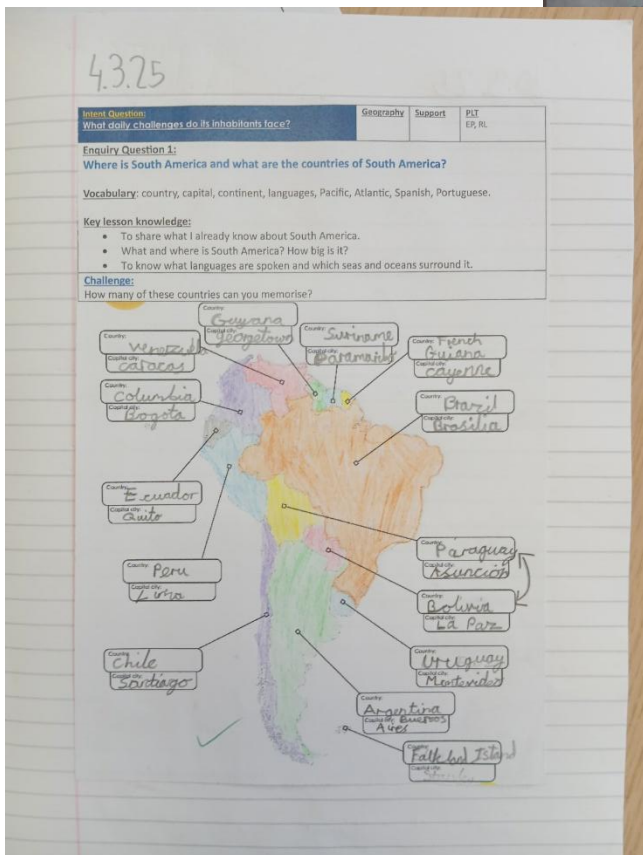 4.3.25
Intent Question:
What daily challenges do its inhabitants face?
Geography
Support
PLT
EP, RL
Enquiry Question 1:
Where is South America and what are the countries of South America?
Vocabulary: country, capital, continent, languages, Pacific, Atlantic, Spanish, Portuguese.
Key lesson knowledge:
• To share what I already know about South America.
• What and where is South America? How big is it?
• To know what languages are spoken and which seas and oceans surround it.
Challenge:
How many of these countries can you memorise?
Country: Guyana
Capital city: georgetown
Country: Suriname
Capital city: Paramaribo
Country: French
Guiana
Capital city: cayenne
Country:
Capital city: caracas
Country: Columbia
Capital city: Bogota
Country: Brazil
Capital city: Brasilia
Country: Ecuador
Capital city: Quito
Country: Peru
Capital city: Lima
Country: Paraguay
Capital city: Asunción
Country: Bolivia
Capital city: La Paz
Country: Chile
Capital city: Santiago
Country: Uruguay
Capital city: Montevideo
Country: Argentina
Capital city: Buenos
Aires
Country: Falkland Island
Capital city: